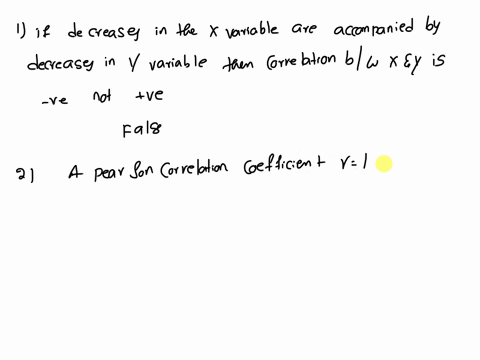 1) if decreases in the x variable are accompanied by
decreases in Y variable then correlation b/w x & y is
-ve not +ve
False
2) A pearson Correlation Coefficient r=1